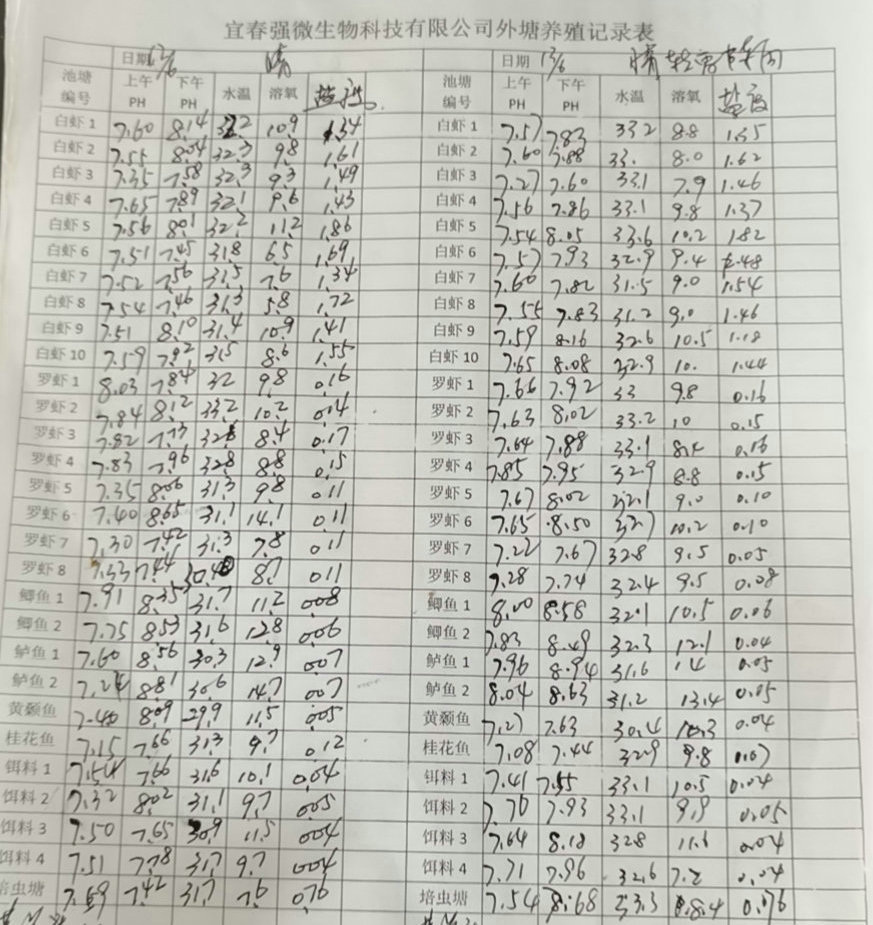 宜春强微生物科技有限公司外塘养殖记录表
日期 晴 日期 晴
池塘编号 上午PH 下午PH 水温 溶氧 盐度 池塘编号 上午PH 下午PH 水温 溶氧 盐度
白虾1 7.60 8.14 32.2 10.9 1.34 白虾1 7.57 7.83 33.2 8.8 1.55
白虾2 7.55 8.04 32.3 9.8 1.61 白虾2 7.60 7.88 33. 8.0 1.62
白虾3 7.35 7.58 32.3 9.3 1.49 白虾3 7.27 7.60 33.1 7.9 1.46
白虾4 7.65 7.89 32.1 9.6 1.43 白虾4 7.56 7.86 33.1 9.8 1.37
白虾5 7.56 8.01 32.2 11.2 1.86 白虾5 7.54 8.05 33.6 10.2 1.82
白虾6 7.51 7.45 31.8 6.5 1.69 白虾6 7.57 7.93 32.9 9.4 1.48
白虾7 7.52 7.56 31.5 7.6 1.34 白虾7 7.60 7.82 31.5 9.0 1.54
白虾8 7.54 7.46 31.3 5.8 1.72 白虾8 7.55 7.83 31.2 9.0 1.46
白虾9 7.51 8.10 31.4 10.9 1.41 白虾9 7.59 8.16 32.6 10.5 1.18
白虾10 7.59 7.92 31.5 8.6 1.55 白虾10 7.65 8.08 32.9 10. 1.44
罗虾1 8.03 7.84 32 9.8 0.16 罗虾1 7.66 7.92 33 9.8 0.16
罗虾2 7.84 8.12 33.2 10.2 0.14 罗虾2 7.63 8.02 33.2 10 0.15
罗虾3 7.82 7.73 32.8 8.4 0.17 罗虾3 7.64 7.88 33.1 8.4 0.16
罗虾4 7.83 7.96 32.8 8.8 0.15 罗虾4 7.85 7.95 32.9 8.8 0.15
罗虾5 7.35 8.06 31.3 9.8 0.11 罗虾5 7.67 8.02 32.1 9.0 0.10
罗虾6 7.40 8.65 31.1 14.1 0.11 罗虾6 7.65 8.50 32.7 10.2 0.10
罗虾7 7.30 7.42 31.3 7.8 0.11 罗虾7 7.22 7.67 32.8 9.5 0.05
罗虾8 7.33 7.44 8.7 0.11 罗虾8 7.28 7.74 32.4 9.5 0.08
鲫鱼1 7.91 8.35 31.7 11.2 0.08 鲫鱼1 8.00 8.58 32.1 10.5 0.06
鲫鱼2 7.75 8.53 31.6 12.8 0.06 鲫鱼2 7.83 8.49 32.3 12.1 0.04
鲈鱼1 7.60 8.56 30.3 12.9 0.07 鲈鱼1 7.96 8.94 31.6 14 0.05
鲈鱼2 7.24 8.81 30.6 14.7 0.07 鲈鱼2 8.04 8.63 31.2 13.4 0.05
黄颡鱼 7.40 8.09 29.9 11.5 0.05 黄颡鱼 7.27 7.63 30.4 10.3 0.04
桂花鱼 7.15 7.66 31.3 9.7 0.12 桂花鱼 7.08 7.44 32.9 9.8 0.07
饵料1 7.54 7.66 31.6 10.1 0.04 饵料1 7.41 7.55 33.1 10.5 0.04
饵料2 7.32 8.02 31.1 9.7 0.05 饵料2 7.76 7.93 33.1 9.9 0.05
饵料3 7.50 7.65 30.9 11.5 0.04 饵料3 7.64 8.18 32.8 11.6 0.04
饵料4 7.51 7.78 31.7 9.7 0.04 饵料4 7.71 7.96 32.6 7.2 0.04
培虫塘 7.69 7.42 31.7 7.6 0.76 培虫塘 7.54 8.68 33.3 8.4 0.76